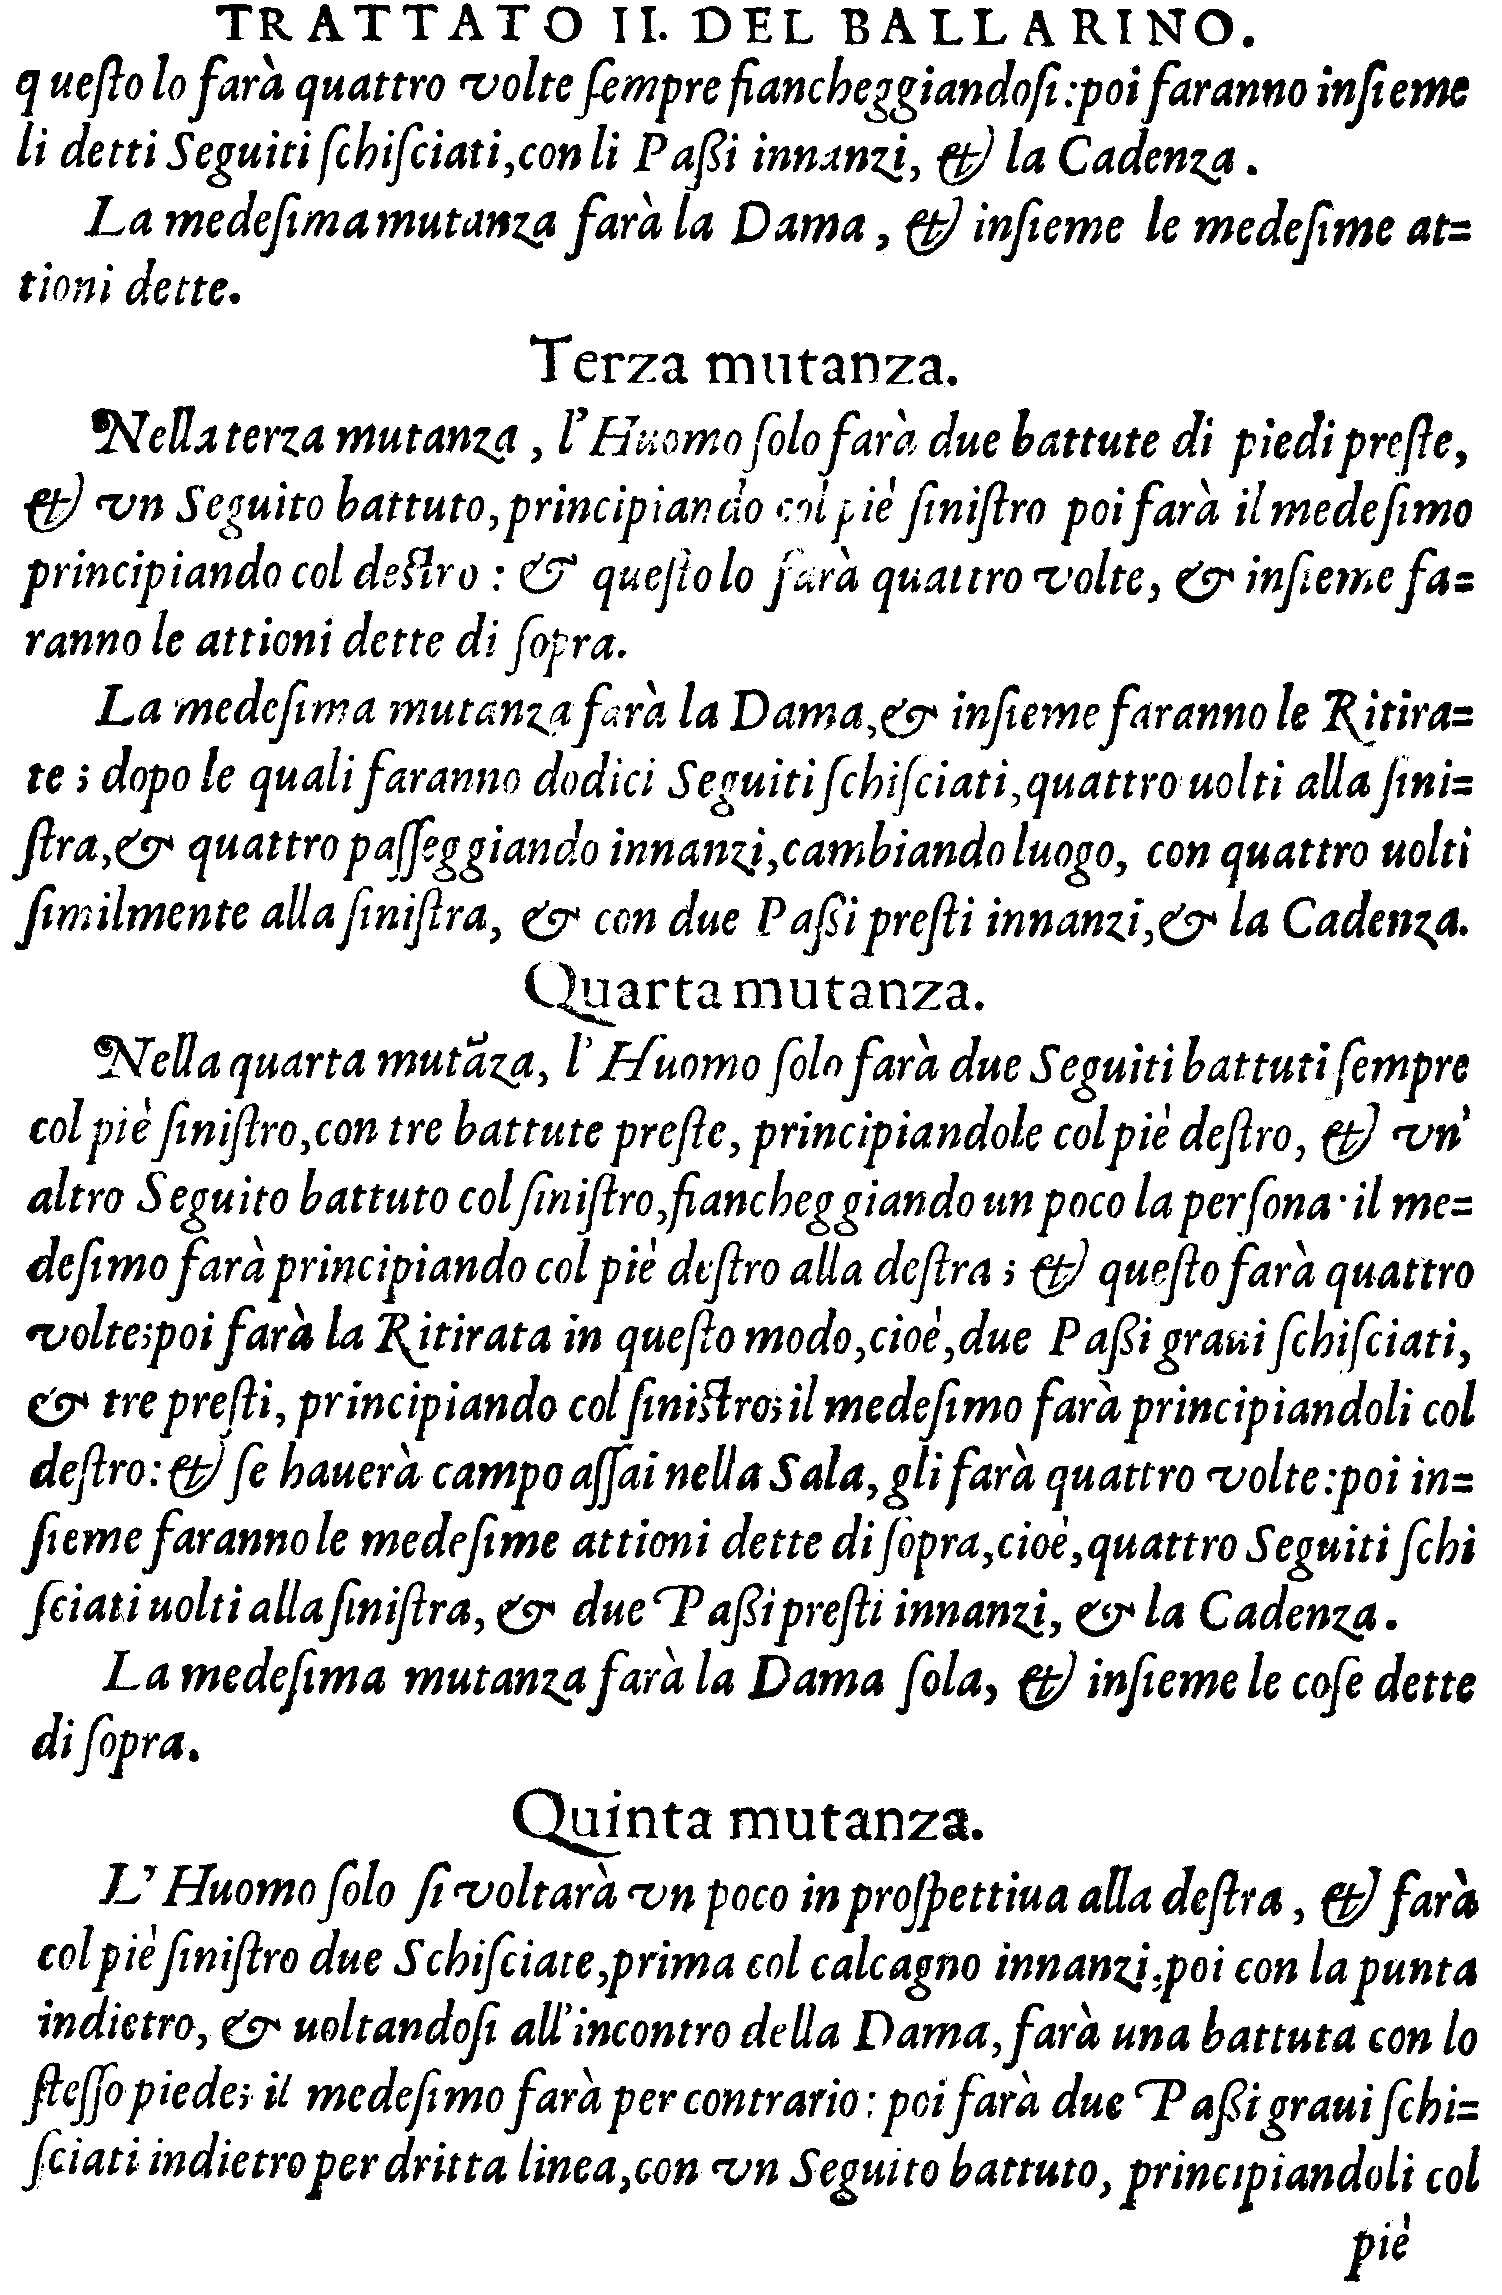 TRATTATO II. DEL BALLARINO.
queſto lo farà quattro volte ſempre fiancheggiandoſi: poi faranno inſieme
li detti Seguiti ſchiſciati, con li Paßi innanzi, & la Cadenza.
La medeſima mutanza farà la Dama, & inſieme le medeſime at=
tioni dette.
Terza mutanza.
Nella terza mutanza, l'Huomo ſolo farà due battute di piedi preſte,
& vn Seguito battuto, principiando col piè ſiniſtro poi farà il medeſimo
principiando col deſtro: & queſto lo farà quattro volte, & inſieme fa=
ranno le attioni dette di ſopra.
La medeſima mutanza farà la Dama, & inſieme faranno le Ritira=
te; dopo le quali faranno dodici Seguiti ſchiſciati, quattro uolti alla ſini=
ſtra, & quattro paſſeggiando innanzi, cambiando luogo, con quattro uolti
ſimilmente alla ſiniſtra, & con due Paßi preſti innanzi, & la Cadenza.
Quarta mutanza.
Nella quarta mutãza, l'Huomo ſolo farà due Seguiti battuti ſempre
col piè ſiniſtro, con tre battute preſte, principiandole col piè deſtro, & vn'
altro Seguito battuto col ſiniſtro, fiancheggiando un poco la perſona· il me=
deſimo farà principiando col piè deſtro alla deſtra; & queſto farà quattro
volte; poi farà la Ritirata in queſto modo, cioè, due Paßi graui ſchiſciati,
& tre preſti, principiando col ſiniſtro; il medeſimo farà principiandoli col
deſtro: & ſe hauerà campo aſſai nella Sala, gli farà quattro volte: poi in=
ſieme faranno le medeſime attioni dette di ſopra, cioè, quattro Seguiti ſchi
ſciati uolti alla ſiniſtra, & due Paßi preſti innanzi, & la Cadenza.
La medeſima mutanza farà la Dama ſola, & inſieme le coſe dette
di ſopra.
Quinta mutanza.
L'Huomo ſolo ſi voltarà vn poco in proſpettiua alla deſtra, & farà
col piè ſiniſtro due Schiſciate, prima col calcagno innanzi, poi con la punta
indietro, & uoltandoſi all'incontro della Dama, farà una battuta con lo
ſteſſo piede; il medeſimo farà per contrario: poi farà due Paßi graui ſchi=
ſciati indietro per dritta linea, con vn Seguito battuto, principiandoli col
piè